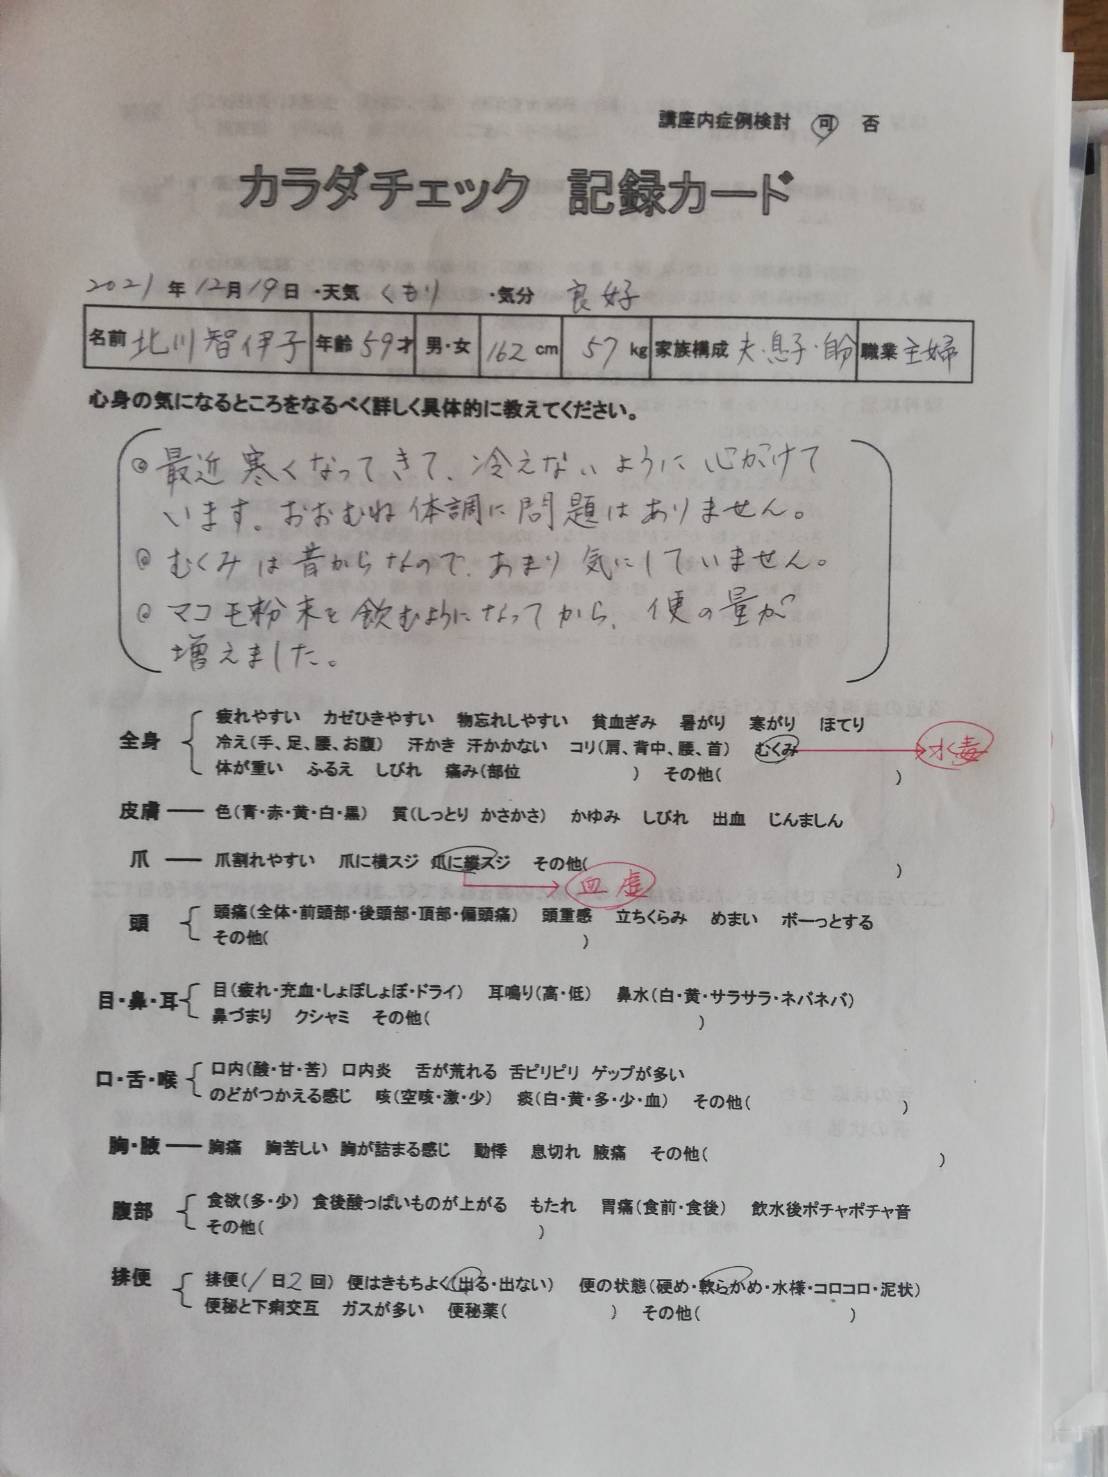 講座内症例検討 可 否
カラダチェック 記録カード
2021年12月19日 ・天気 くもり ・気分 良好
名前 北川智伊子 年齢 59才 男・女 162cm 57kg 家族構成 夫・息子・自分 職業 主婦
心身の気になるところをなるべく詳しく具体的に教えてください。
◎最近寒くなってきて、冷えないように心がけて
います。おおむね体調に問題はありません。
◎むくみは昔からなので、あまり気にしていません。
◎マコモ粉末を飲むようになってから、便の量が
増えました。
疲れやすい カゼひきやすい 物忘れしやすい 貧血ぎみ 暑がり 寒がり ほてり
全身 冷え(手、足、腰、お腹) 汗かき 汗かかない コリ(肩、背中、腰、首) むくみ 水毒
体が重い ふるえ しびれ 痛み(部位 ) その他( )
皮膚 色(青・赤・黄・白・黒) 質(しっとり かさかさ) かゆみ しびれ 出血 じんましん
爪 爪割れやすい 爪に横スジ 爪に縦スジ その他( )
血虚
頭 頭痛(全体・前頭部・後頭部・頂部・偏頭痛) 頭重感 立ちくらみ めまい ボーっとする
その他( )
目・鼻・耳 目(疲れ・充血・しょぼしょぼ・ドライ) 耳鳴り(高・低) 鼻水(白・黄・サラサラ・ネバネバ)
鼻づまり クシャミ その他( )
口・舌・喉 口内(酸・甘・苦) 口内炎 舌が荒れる 舌ピリピリ ゲップが多い
のどがつかえる感じ 咳(空咳・激・少) 痰(白・黄・多・少・血) その他( )
胸・腋 胸痛 胸苦しい 胸が詰まる感じ 動悸 息切れ 腋痛 その他( )
腹部 食欲(多・少) 食後酸っぱいものが上がる もたれ 胃痛(食前・食後) 飲水後ポチャポチャ音
その他( )
排便 排便(1日2回) 便はきもちよく(出る・出ない) 便の状態(硬め・軟らかめ・水様・コロコロ・泥状)
便秘と下痢交互 ガスが多い 便秘薬( ) その他( )